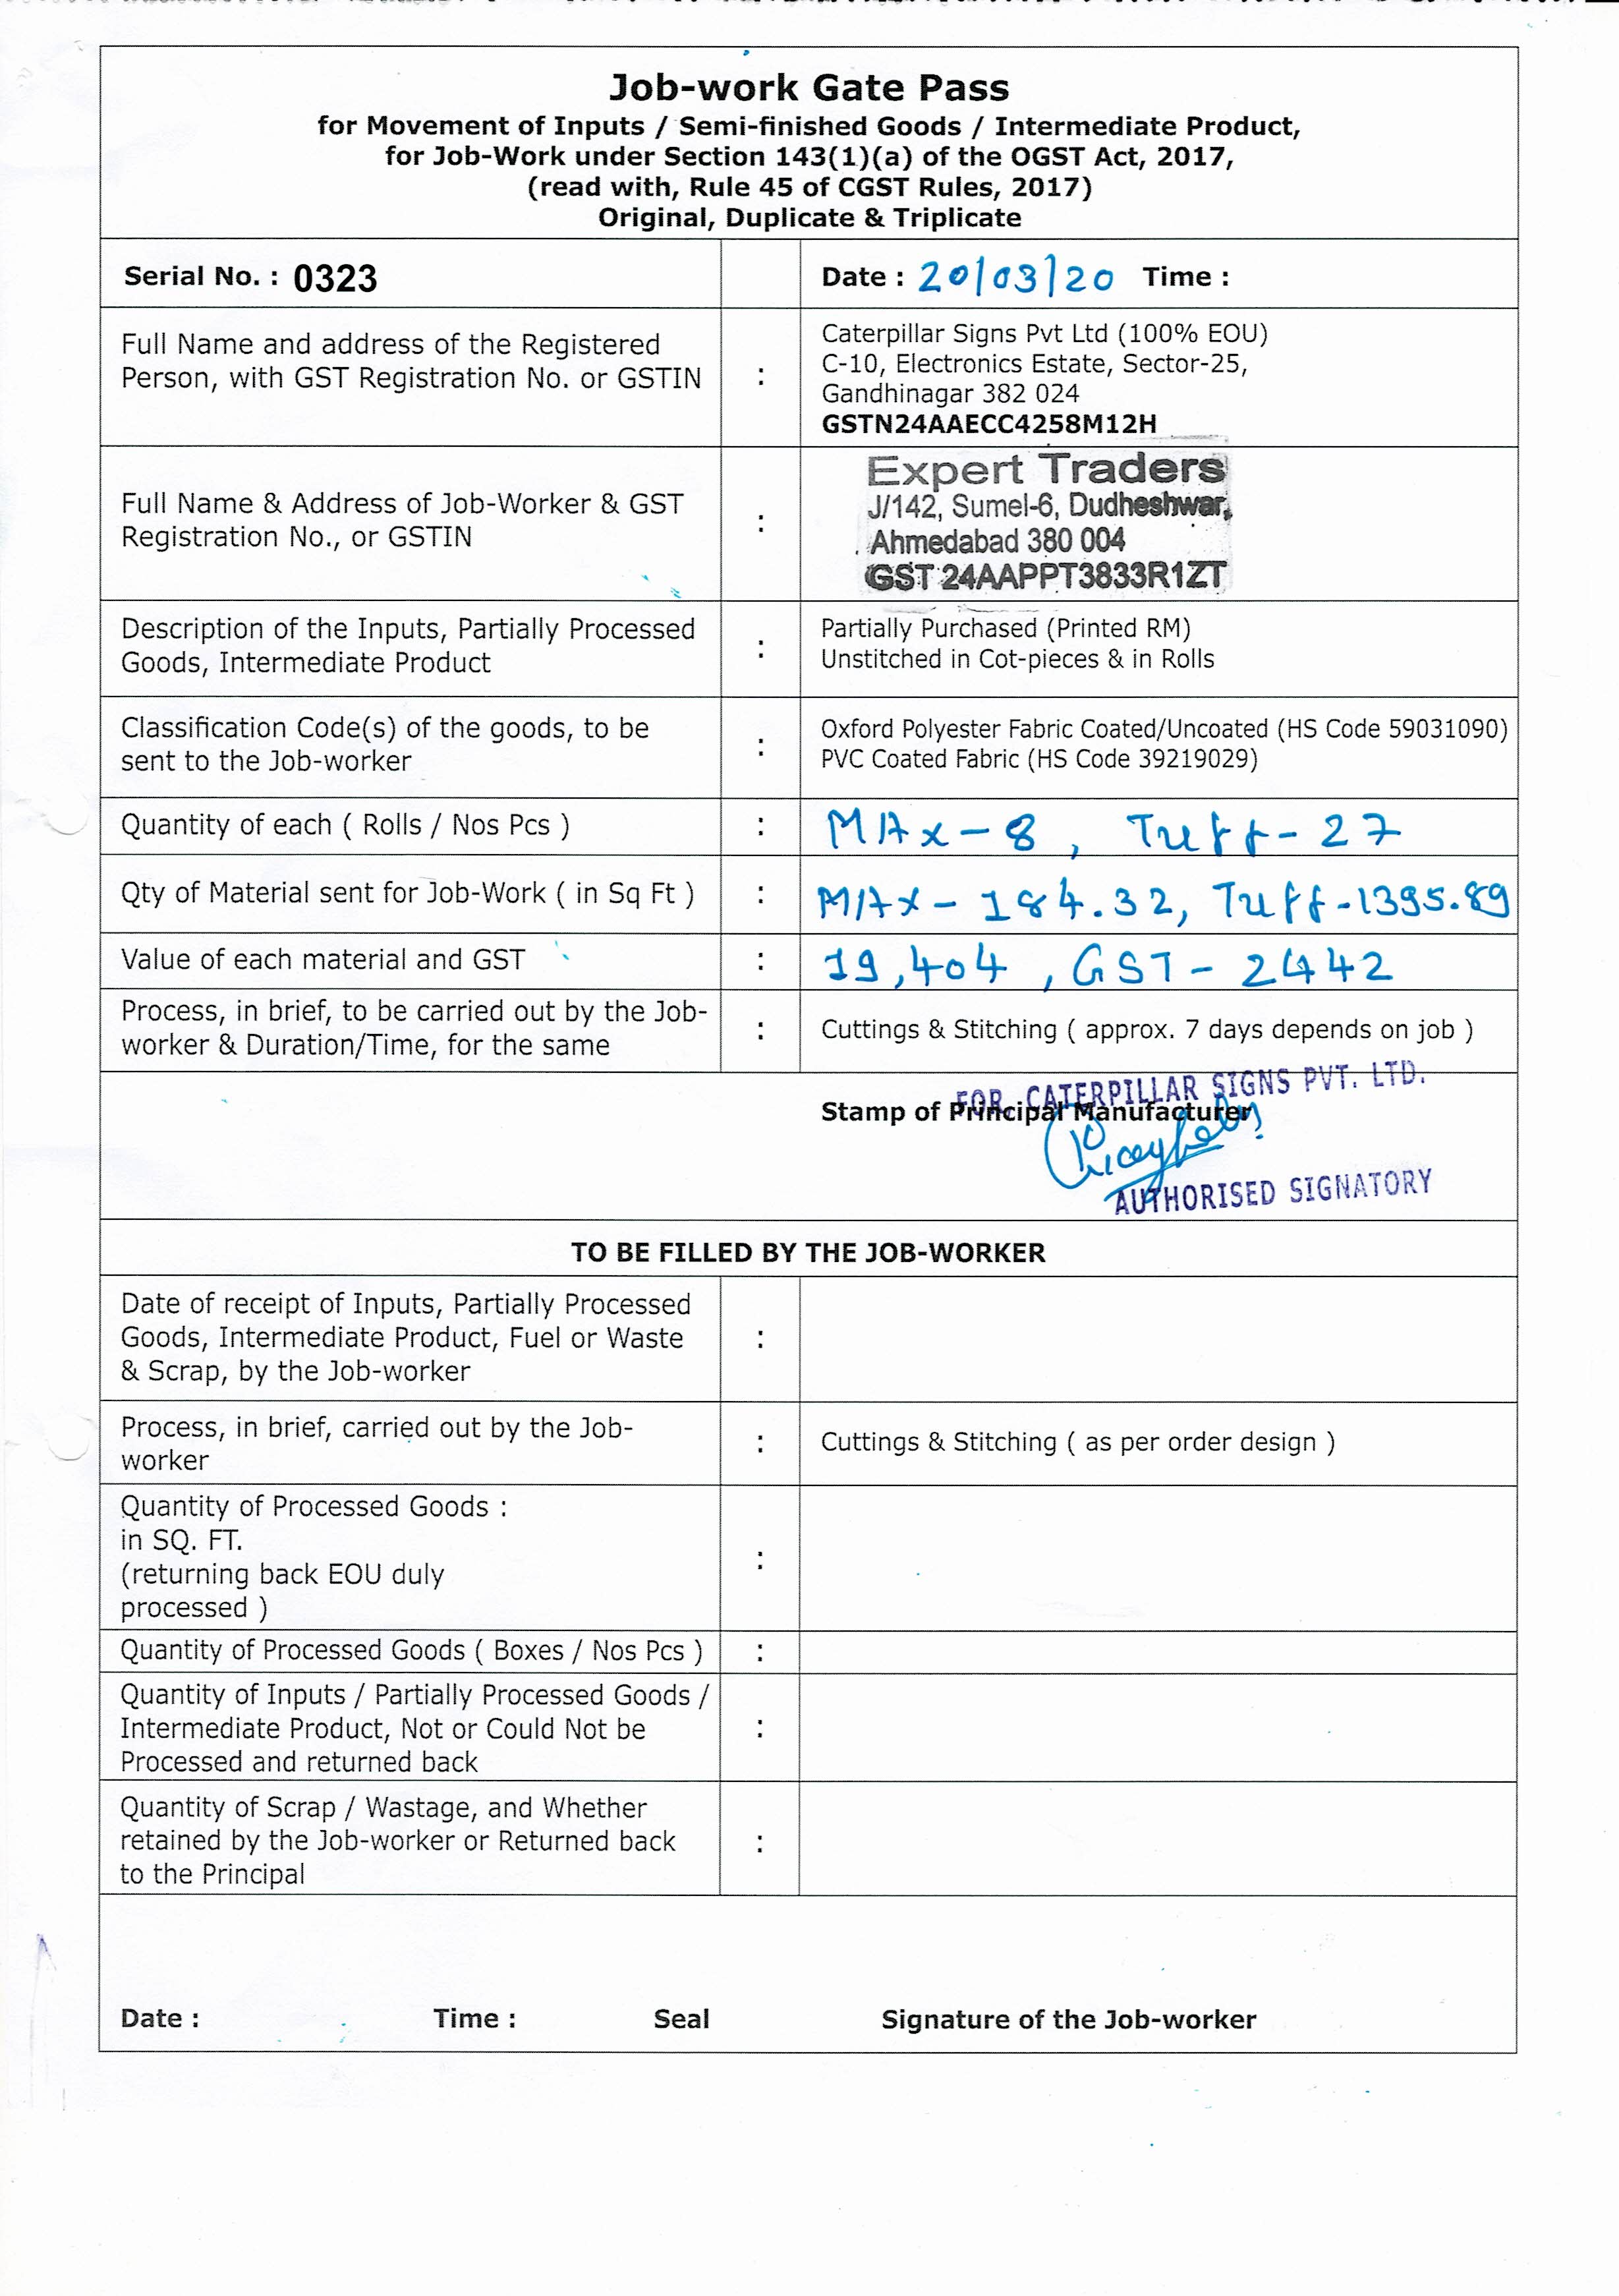 Job-work Gate Pass
for Movement of Inputs / Semi-finished Goods / Intermediate Product,
for Job-Work under Section 143(1)(a) of the OGST Act, 2017,
(read with, Rule 45 of CGST Rules, 2017)
Original, Duplicate & Triplicate
Serial No. : 0323
Date : 20/03/20 Time :
Full Name and address of the Registered
Person, with GST Registration No. or GSTIN
:
Caterpillar Signs Pvt Ltd (100% EOU)
C-10, Electronics Estate, Sector-25,
Gandhinagar 382 024
GSTN24AAECC4258M12H
Full Name & Address of Job-Worker & GST
Registration No., or GSTIN
:
Expert Traders
J/142, Sumel-6, Dudheshwar,
Ahmedabad 380 004
GST 24AAPPT3833R1ZT
Description of the Inputs, Partially Processed
Goods, Intermediate Product
:
Partially Purchased (Printed RM)
Unstitched in Cot-pieces & in Rolls
Classification Code(s) of the goods, to be
sent to the Job-worker
:
Oxford Polyester Fabric Coated/Uncoated (HS Code 59031090)
PVC Coated Fabric (HS Code 39219029)
Quantity of each ( Rolls / Nos Pcs )
:
MAx - 8 , Tuff - 27
Qty of Material sent for Job-Work ( in Sq Ft )
:
MAx - 184.32, Tuff - 1395.89
Value of each material and GST
:
19,404 , GST - 2442
Process, in brief, to be carried out by the Job-
worker & Duration/Time, for the same
:
Cuttings & Stitching ( approx. 7 days depends on job )
FOR, CATERPILLAR SIGNS PVT. LTD.
Stamp of Principal Manufacturer
AUTHORISED SIGNATORY
TO BE FILLED BY THE JOB-WORKER
Date of receipt of Inputs, Partially Processed
Goods, Intermediate Product, Fuel or Waste
& Scrap, by the Job-worker
:
Process, in brief, carried out by the Job-
worker
:
Cuttings & Stitching ( as per order design )
Quantity of Processed Goods :
in SQ. FT.
(returning back EOU duly
processed )
:
Quantity of Processed Goods ( Boxes / Nos Pcs )
:
Quantity of Inputs / Partially Processed Goods /
Intermediate Product, Not or Could Not be
Processed and returned back
:
Quantity of Scrap / Wastage, and Whether
retained by the Job-worker or Returned back
to the Principal
:
Date : Time : Seal Signature of the Job-worker